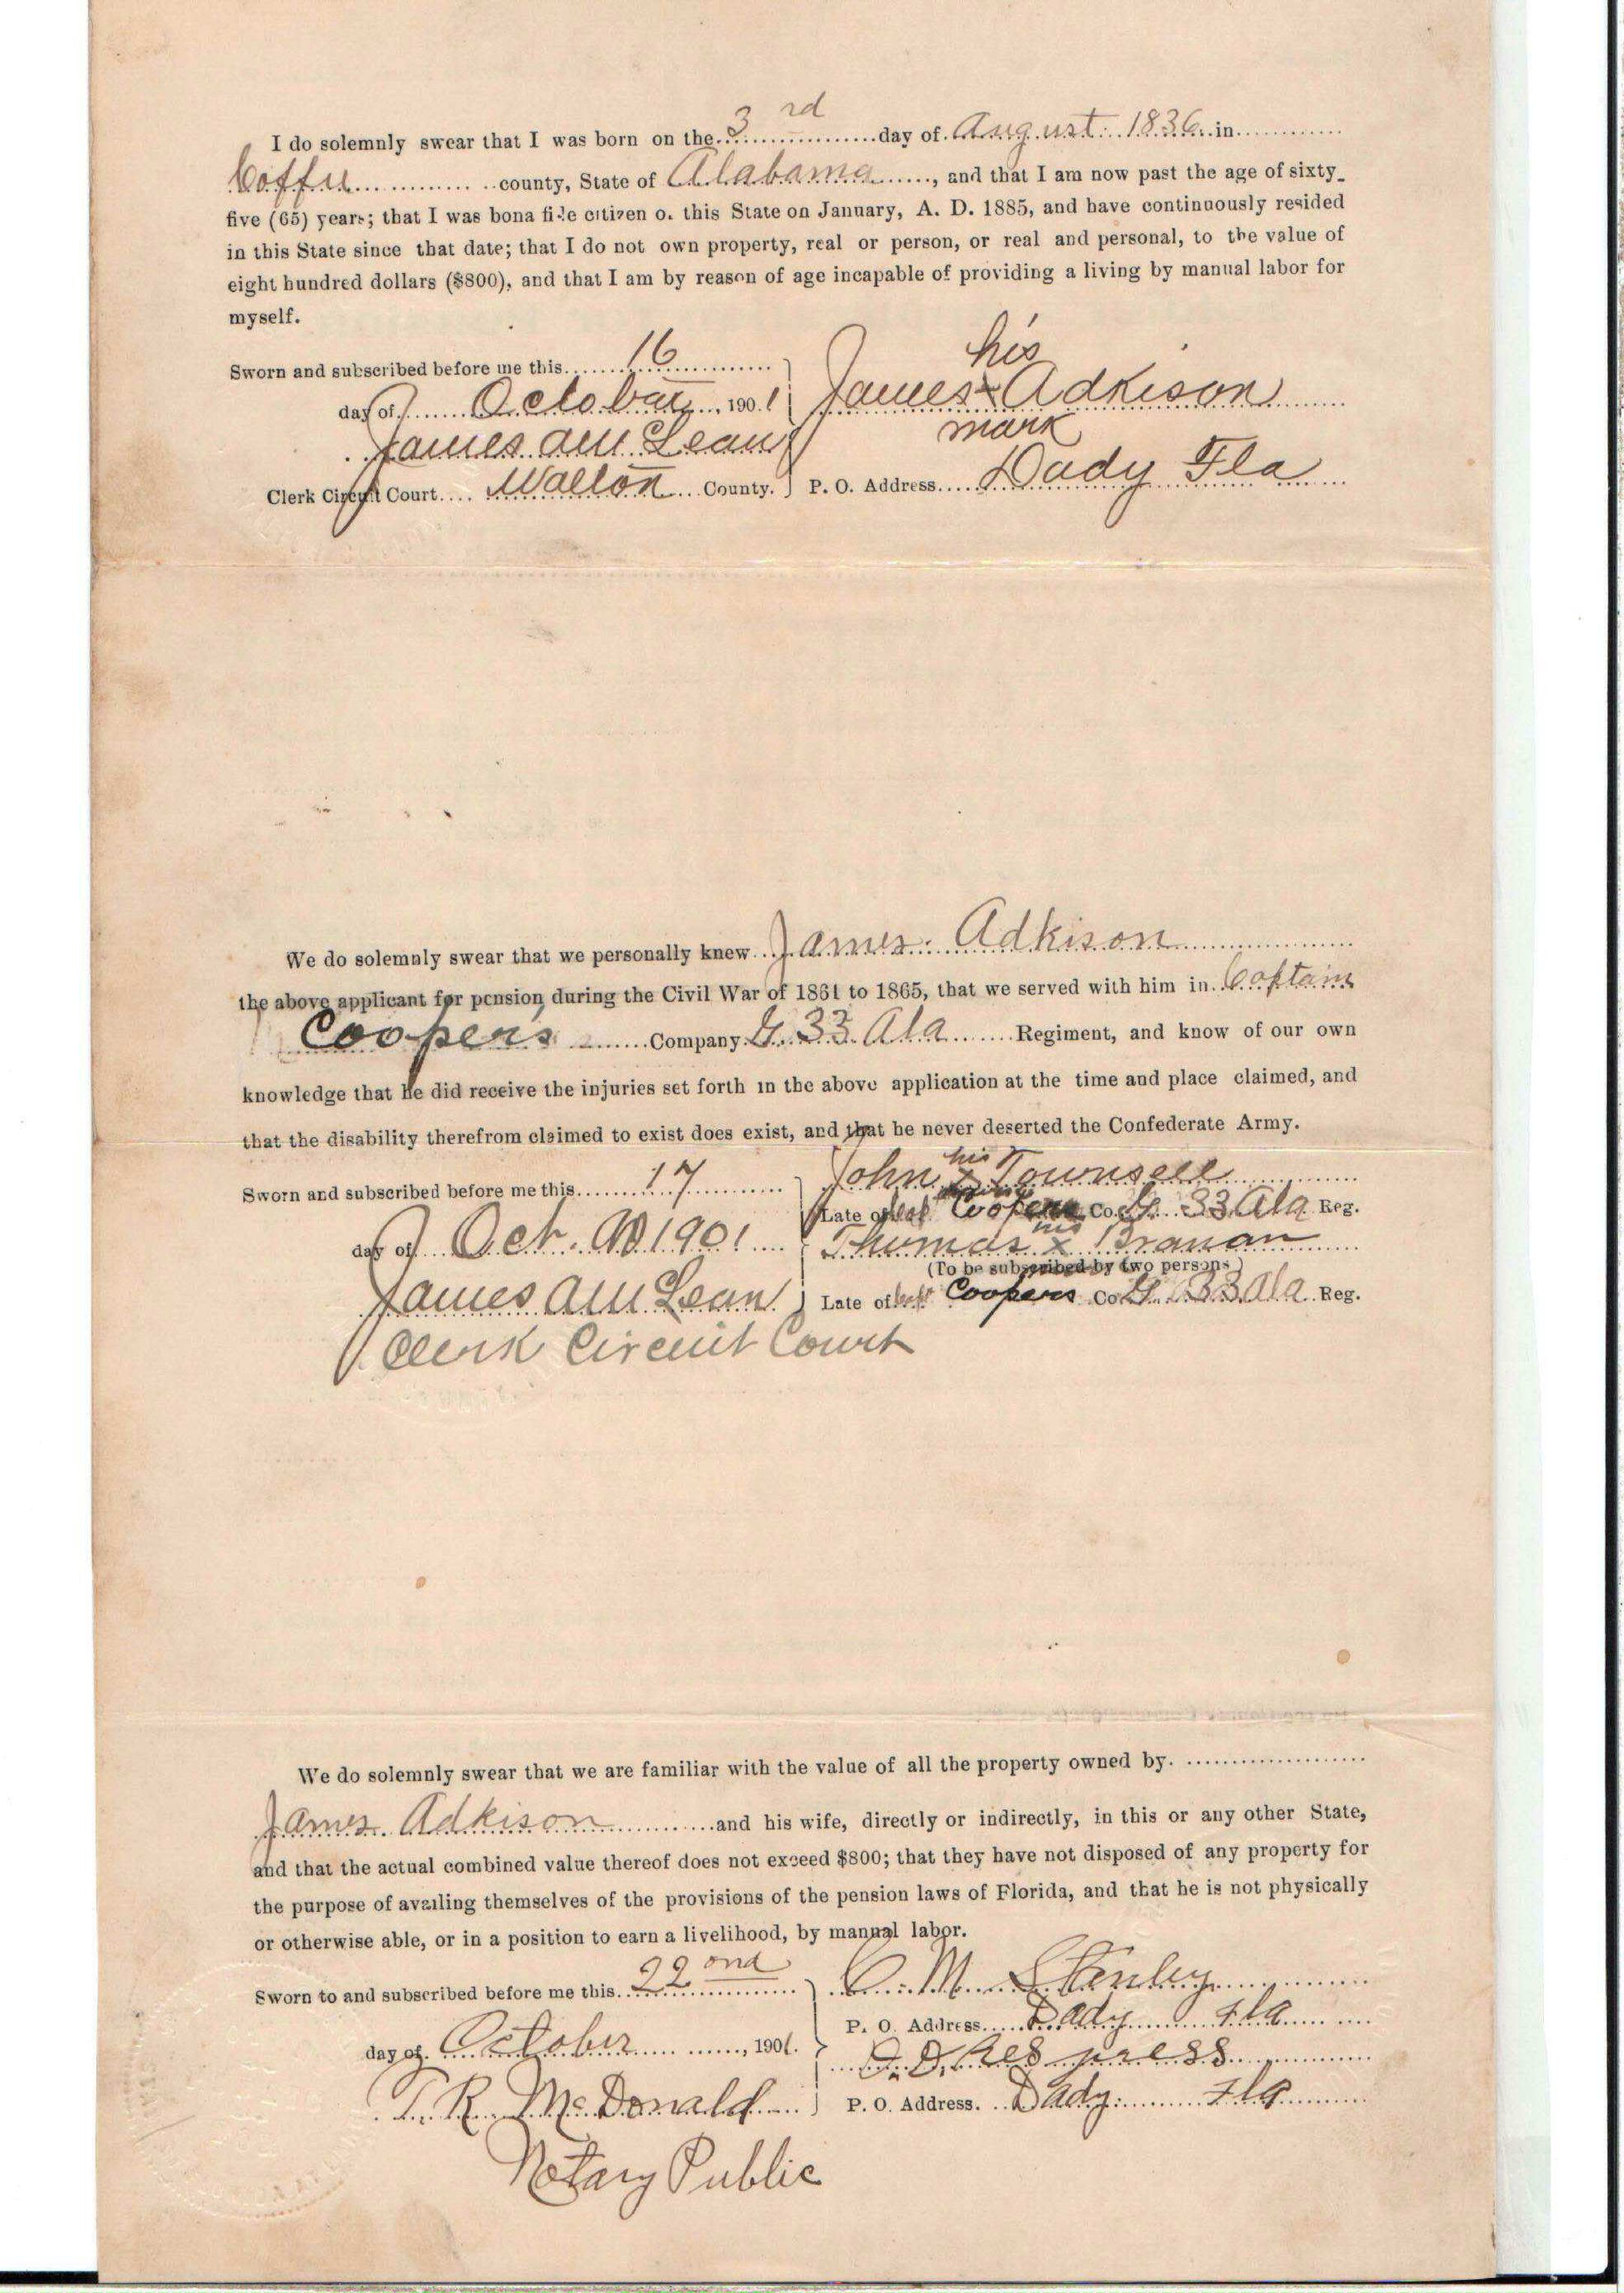 I do solemnly swear that I was born on the 3rd day of August 1836 in
Coffee county, State of Alabama, and that I am now past the age of sixty-
five (65) years; that I was bona fide citizen of this State on January, A. D. 1885, and have continuously resided
in this State since that date; that I do not own property, real or person, or real and personal, to the value of
eight hundred dollars ($800), and that I am by reason of age incapable of providing a living by manual labor for
myself.
Sworn and subscribed before me this 16
day of October, 1901
James McLean
Clerk Circuit Court Walton County.
his
James x Adkison
mark
P. O. Address Dady Fla
We do solemnly swear that we personally knew James Adkison
the above applicant for pension during the Civil War of 1861 to 1865, that we served with him in Captain
Coopers Company G. 33 Ala Regiment, and know of our own
knowledge that he did receive the injuries set forth in the above application at the time and place claimed, and
that the disability therefrom claimed to exist does exist, and that he never deserted the Confederate Army.
Sworn and subscribed before me this 17
day of Oct. AD 1901
James McLean
Clerk Circuit Court
his
John x Townsell
Late of Capt Coopers Co. G. 33 Ala Reg.
his
Thomas x Branan
(To be subscribed by two persons)
Late of Capt Coopers Co G 33 Ala Reg.
We do solemnly swear that we are familiar with the value of all the property owned by
James Adkison and his wife, directly or indirectly, in this or any other State,
and that the actual combined value thereof does not exceed $800; that they have not disposed of any property for
the purpose of availing themselves of the provisions of the pension laws of Florida, and that he is not physically
or otherwise able, or in a position to earn a livelihood, by manual labor.
Sworn to and subscribed before me this 22ond
day of October, 1901.
T. R. McDonald
Notary Public
C. M. Stanley
P. O. Address Dady Fla
Respress
P. O. Address. Dady Fla